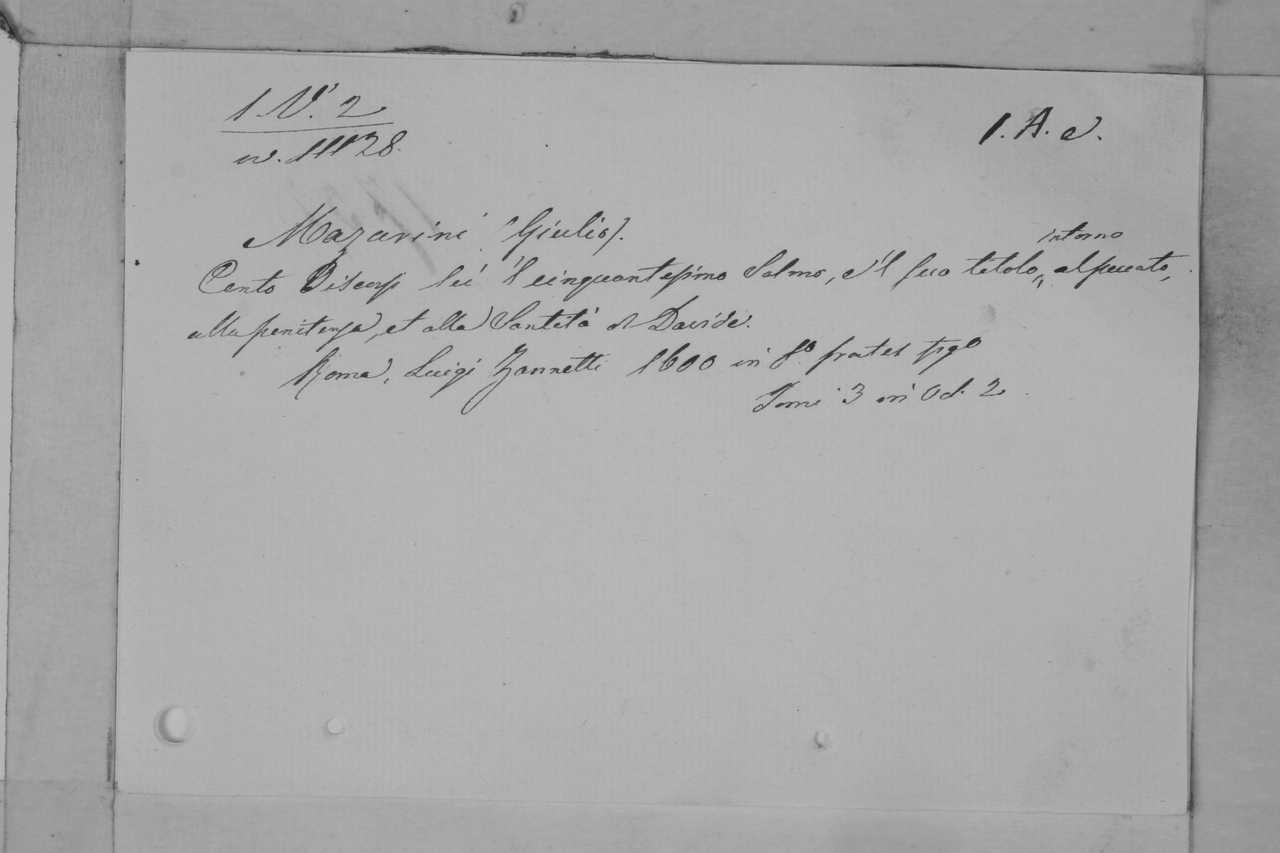 1. V. 2
n. 11128.
1. A. e.
Mazarini (Giulio).
Cento Discorsi sù 'l cinquantesimo Salmo, e 'l suo titolo, intorno al peccato,
alla penitenza, et alla Santità di Davide.
Roma, Luigi Zannetti 1600 in 8º
Tomi 3 in Vol. 2